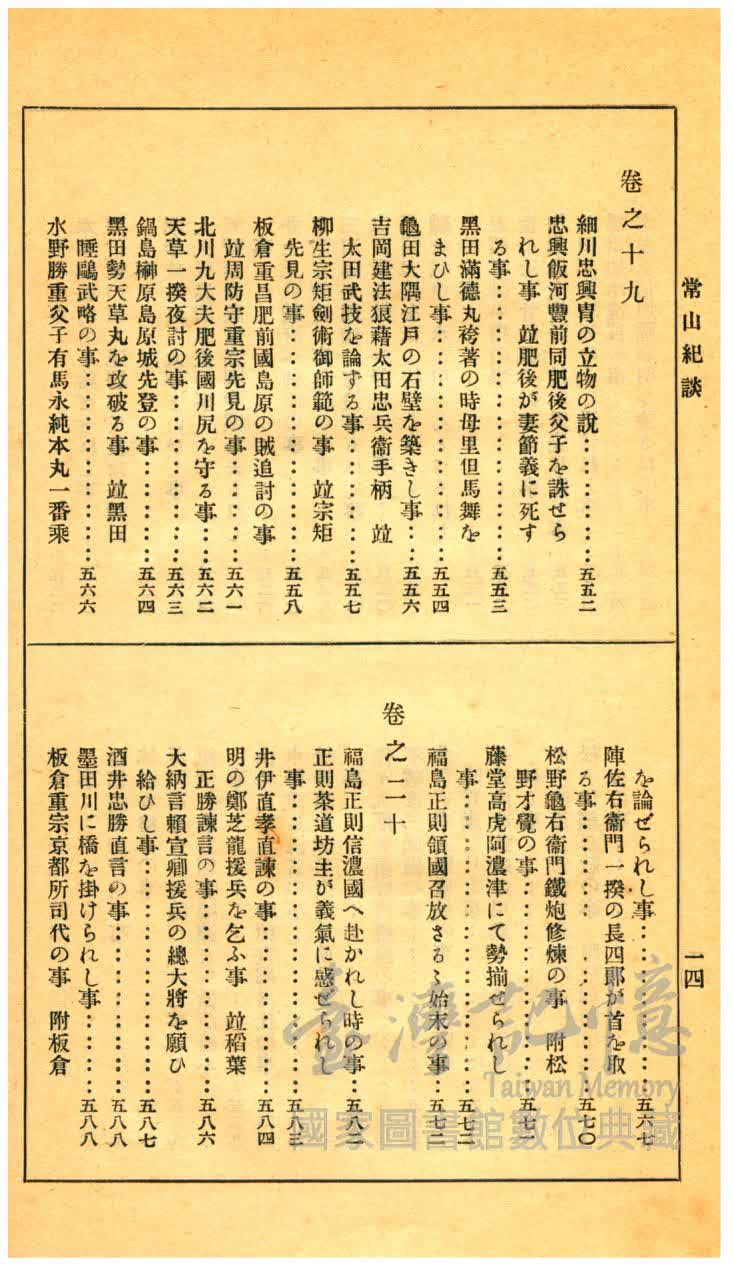 常山紀談
一四
卷之十九
細川忠興冑の立物の說……………五五二
忠興飯河豐前同肥後父子を誅せら
れし事　竝肥後が妻節義に死す
る事……………五五三
黑田滿德丸袴著の時母里但馬舞を
まひし事……………五五四
龜田大隅江戶の石壁を築きし事……五五六
吉岡建法狼藉太田忠兵衞手柄　竝
太田武技を論ずる事……………五五七
柳生宗矩劍術御師範の事　竝宗矩
先見の事……………五五八
板倉重昌肥前國島原の賊追討の事
竝周防守重宗先見の事…………五六一
北川九大夫肥後國川尻を守る事……五六二
天草一揆夜討の事……………五六三
鍋島榊原島原城先登の事…………五六四
黑田勢天草丸を攻破る事　竝黑田
睡鷗武略の事……………五六六
水野勝重父子有馬永純本丸一番乘
を論ぜられし事……………五六七
陣佐右衞門一揆の長四郎が首を取
る事……………五七〇
松野龜右衞門鐵炮修煉の事　附松
野才覺の事……………五七一
藤堂高虎阿濃津にて勢揃せられし
事……………五七二
福島正則領國召放さるゝ始末の事…五七二
卷之二十
福島正則信濃國へ赴かれし時の事…五八二
正則茶道坊主が義氣に感ぜられし
事……………五八三
井伊直孝直諫の事……………五八四
明の鄭芝龍援兵を乞ふ事　竝稻葉
正勝諫言の事……………五八六
大納言賴宣卿援兵の總大將を願ひ
給ひし事……………五八七
酒井忠勝直言の事……………五八八
墨田川に橋を掛けられし事………五八八
板倉重宗京都所司代の事　附板倉
臺灣記憶
Taiwan Memory
國家圖書館數位典藏